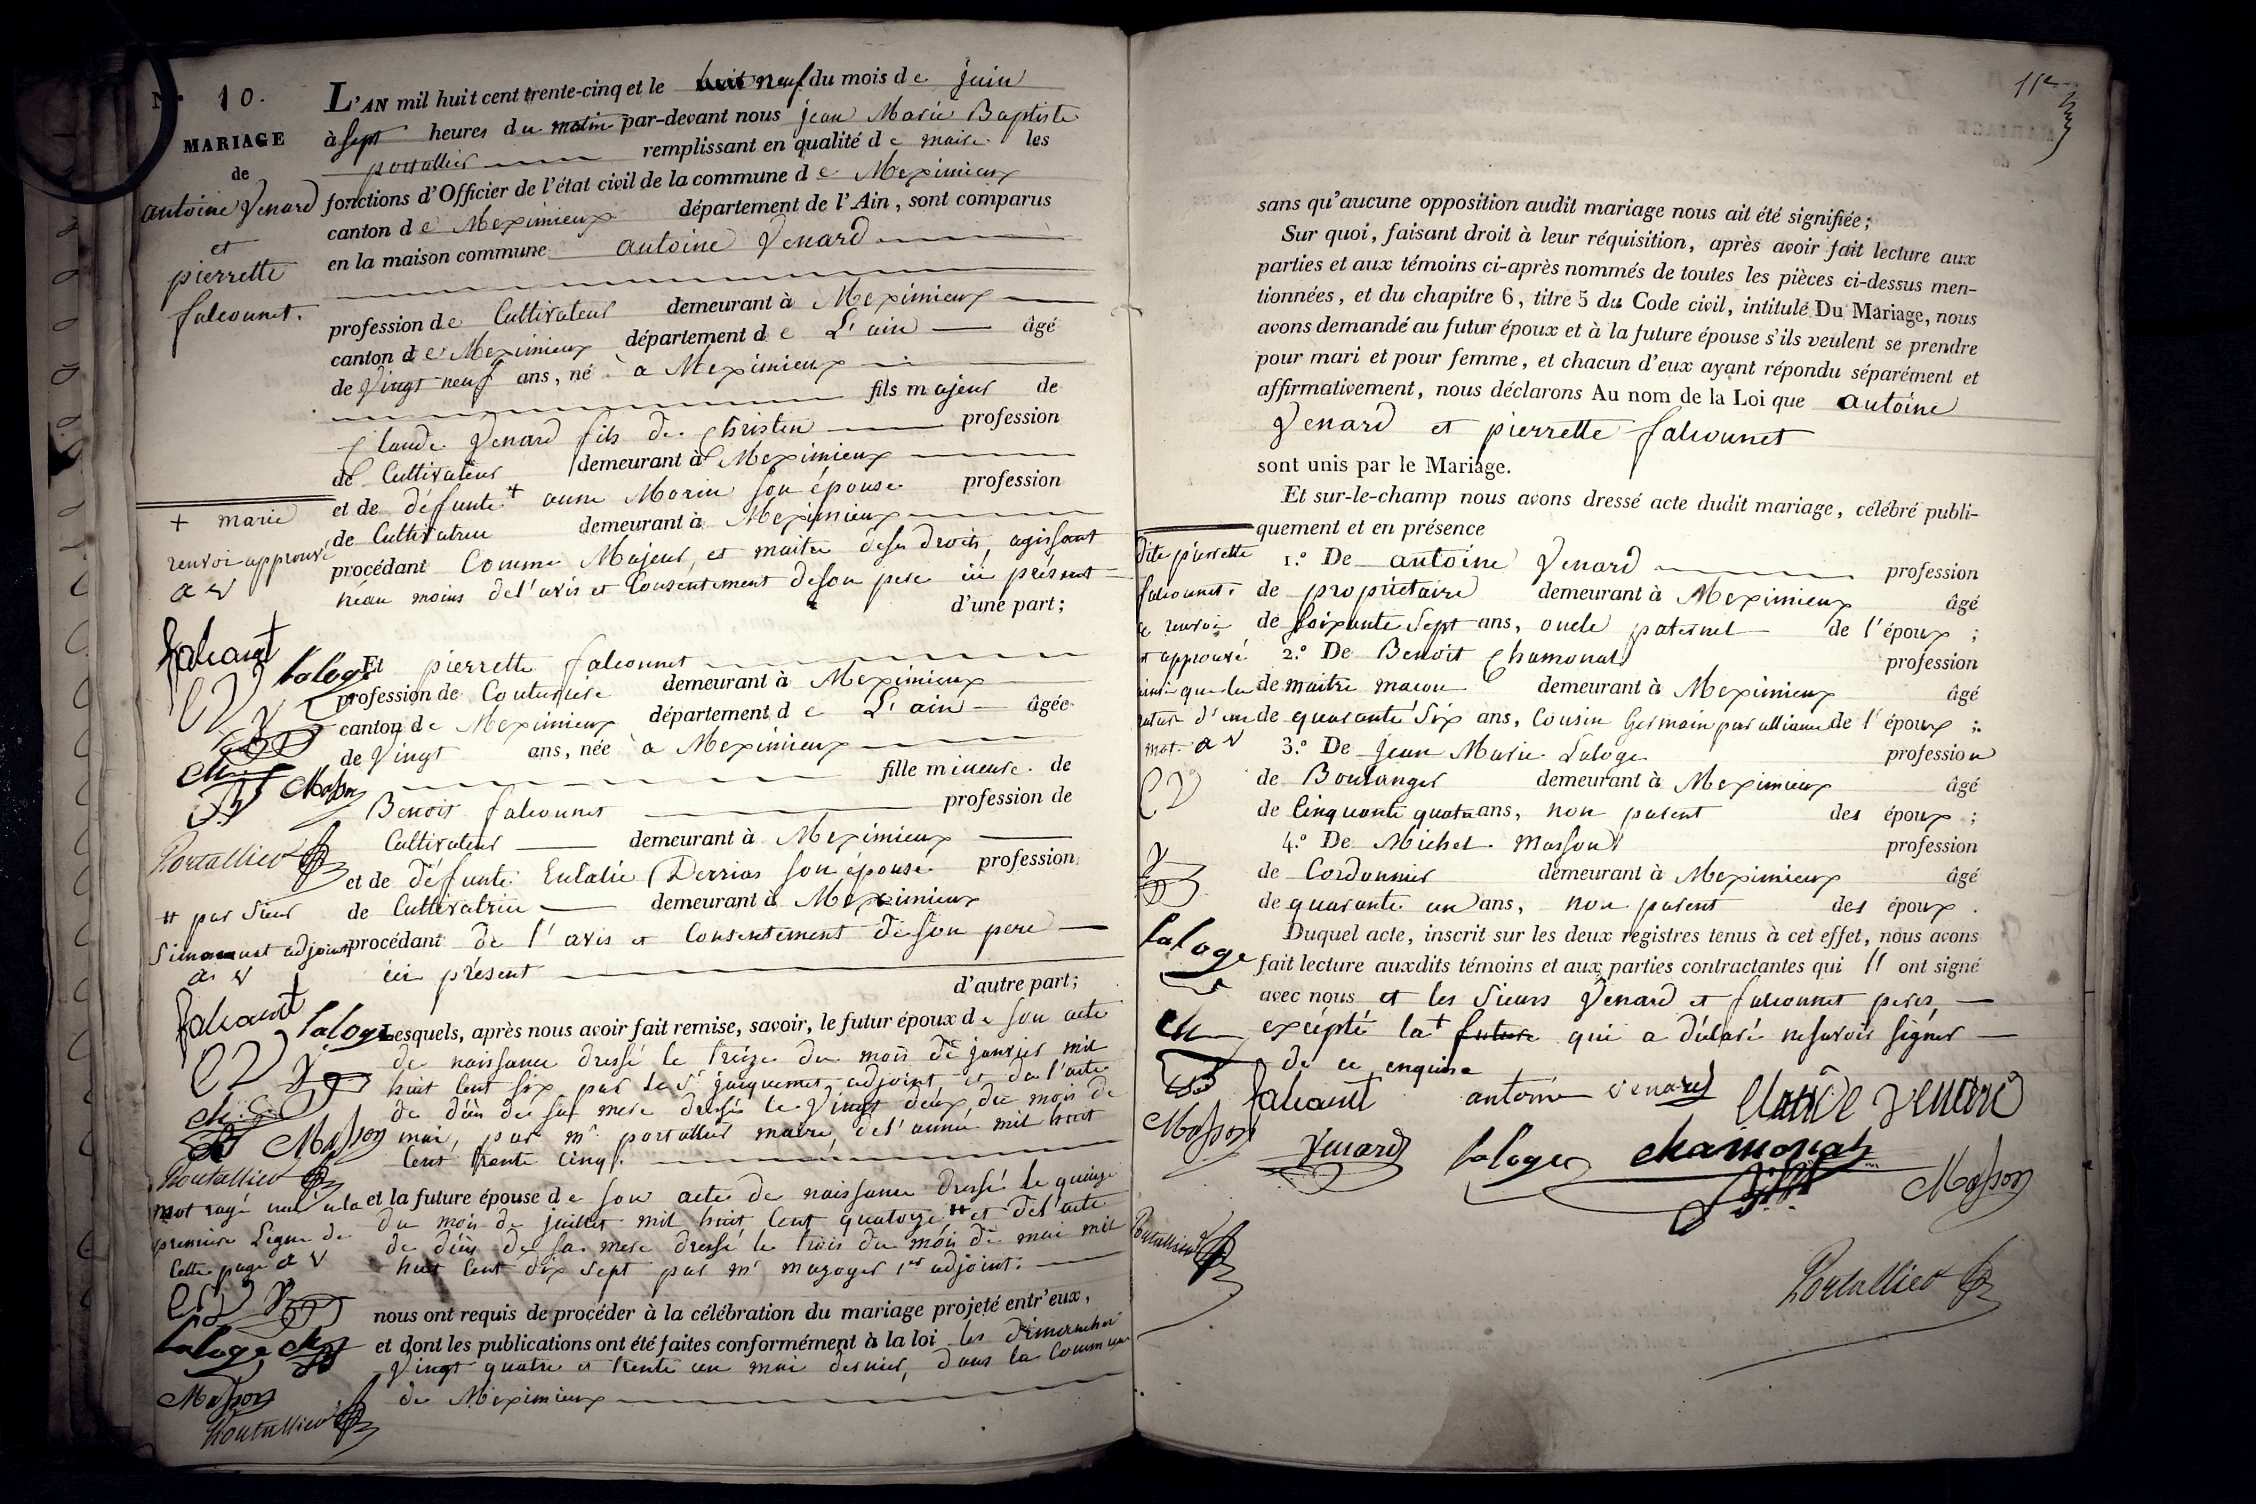 N.° 10.
MARIAGE
de
antoine Venard
et
pierrette
falconnet.
L'AN mil huit cent trente-cinq et le huit neuf du mois de juin
à sept heures du matin par-devant nous jean Marie Baptiste
portallier remplissant en qualité de maire les
fonctions d'Officier de l'état civil de la commune de Meximieux
canton de Meximieux département de l'Ain, sont comparus
en la maison commune antoine Venard
profession de Cultivateur demeurant à Meximieux
canton de Meximieux département de L'ain âgé
de Vingt neuf ans, né à Meximieux
fils majeur de
Claude Venard fils de Christin profession
de Cultivateur demeurant à Meximieux
et de défunte + anne Morin son épouse profession
de Cultivatrice demeurant à Meximieux
procédant Comme Majeur, et maitre de ses droits, agissant
néan moins de l'avis et Consentement de son pere ici présent
d'une part;
+ marie
renvoi approuvé
a v
falconnet laloge
Et pierrette falconnet
profession de Couturiere demeurant à Meximieux
canton de Meximieux département de L'ain âgée
de Vingt ans, née à Meximieux
fille mineure de
Benoit falconnet profession de
Cultivateur demeurant à Meximieux
et de défunte Eulalie Derrias son épouse profession
de Cultivatrice demeurant à Meximieux
procédant de l'avis et Consentement de son pere
ici présent
d'autre part;
Masson
Portallier
# par Sieur
Simonnet adjoint
a v
falconnet laloge
Lesquels, après nous avoir fait remise, savoir, le futur époux de son acte
de naissance dressé le treize du mois de janvier mil
huit Cent six par le Sr jacquemet adjoint, et de l'acte
de décès de sa mere dressé le Vingt deux du mois de
mai, par Mr portallier maire, de l'année mil huit
Cent trente Cinq.
et la future épouse de son acte de naissance dressé le quinze
du mois de juillet mil huit Cent quatorze # et de l'acte
de décès de sa mere dressé le trois du mois de mai mil
huit Cent dix sept par mr mazoyer 1er adjoint.
nous ont requis de procéder à la célébration du mariage projeté entr'eux,
et dont les publications ont été faites conformément à la loi les dimanches
Vingt quatre et trente un mai dernier, dans la Commune
de Meximieux
Masson
Portallier
mot rayé nul à la
premiere Ligne de
Cette page a v
laloge
Masson
Portallier
11e
sans qu'aucune opposition audit mariage nous ait été signifiée;
Sur quoi, faisant droit à leur réquisition, après avoir fait lecture aux
parties et aux témoins ci-après nommés de toutes les pièces ci-dessus men-
tionnées, et du chapitre 6, titre 5 du Code civil, intitulé Du Mariage, nous
avons demandé au futur époux et à la future épouse s'ils veulent se prendre
pour mari et pour femme, et chacun d'eux ayant répondu séparément et
affirmativement, nous déclarons Au nom de la Loi que antoine
Venard et pierrette falconnet
sont unis par le Mariage.
Et sur-le-champ nous avons dressé acte dudit mariage, célébré publi-
quement et en présence
1.° De antoine Venard profession
de propriétaire demeurant à Meximieux âgé
de soixante sept ans, oncle paternel de l'époux;
2.° De Benoit Chamonal profession
de maitre maçon demeurant à Meximieux âgé
de quarante six ans, Cousin Germain par alliance de l'époux;
3.° De Jean Marie Laloge profession
de Boulanger demeurant à Meximieux âgé
de Cinquante quatre ans, non parent des époux;
4.° De Michel Masson profession
de Cordonnier demeurant à Meximieux âgé
de quarante un ans, non parent des époux.
Duquel acte, inscrit sur les deux registres tenus à cet effet, nous avons
fait lecture auxdits témoins et aux parties contractantes qui ont signé
avec nous et les Sieurs Venard et falconnet peres,
excépté la + future qui a déclaré ne savoir signer
de ce enquise
dite pierrette
falconnet.
ce renvoi
est approuvé
ainsi que la
rature d'un
mot. a v
laloge
Masson
Portallier
falconnet antoine venard Claude Venard
Venard laloge chamonal
Masson
Portallier